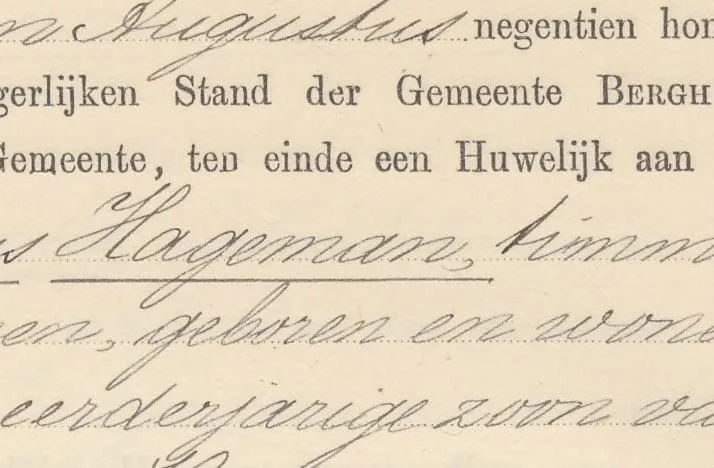 n Augustus negentien hon
gerlijken Stand der Gemeente BERGH
Gemeente, ten einde een Huwelijk aan
s Hageman, timm
en, geboren en wone
eerderjarige zoon va